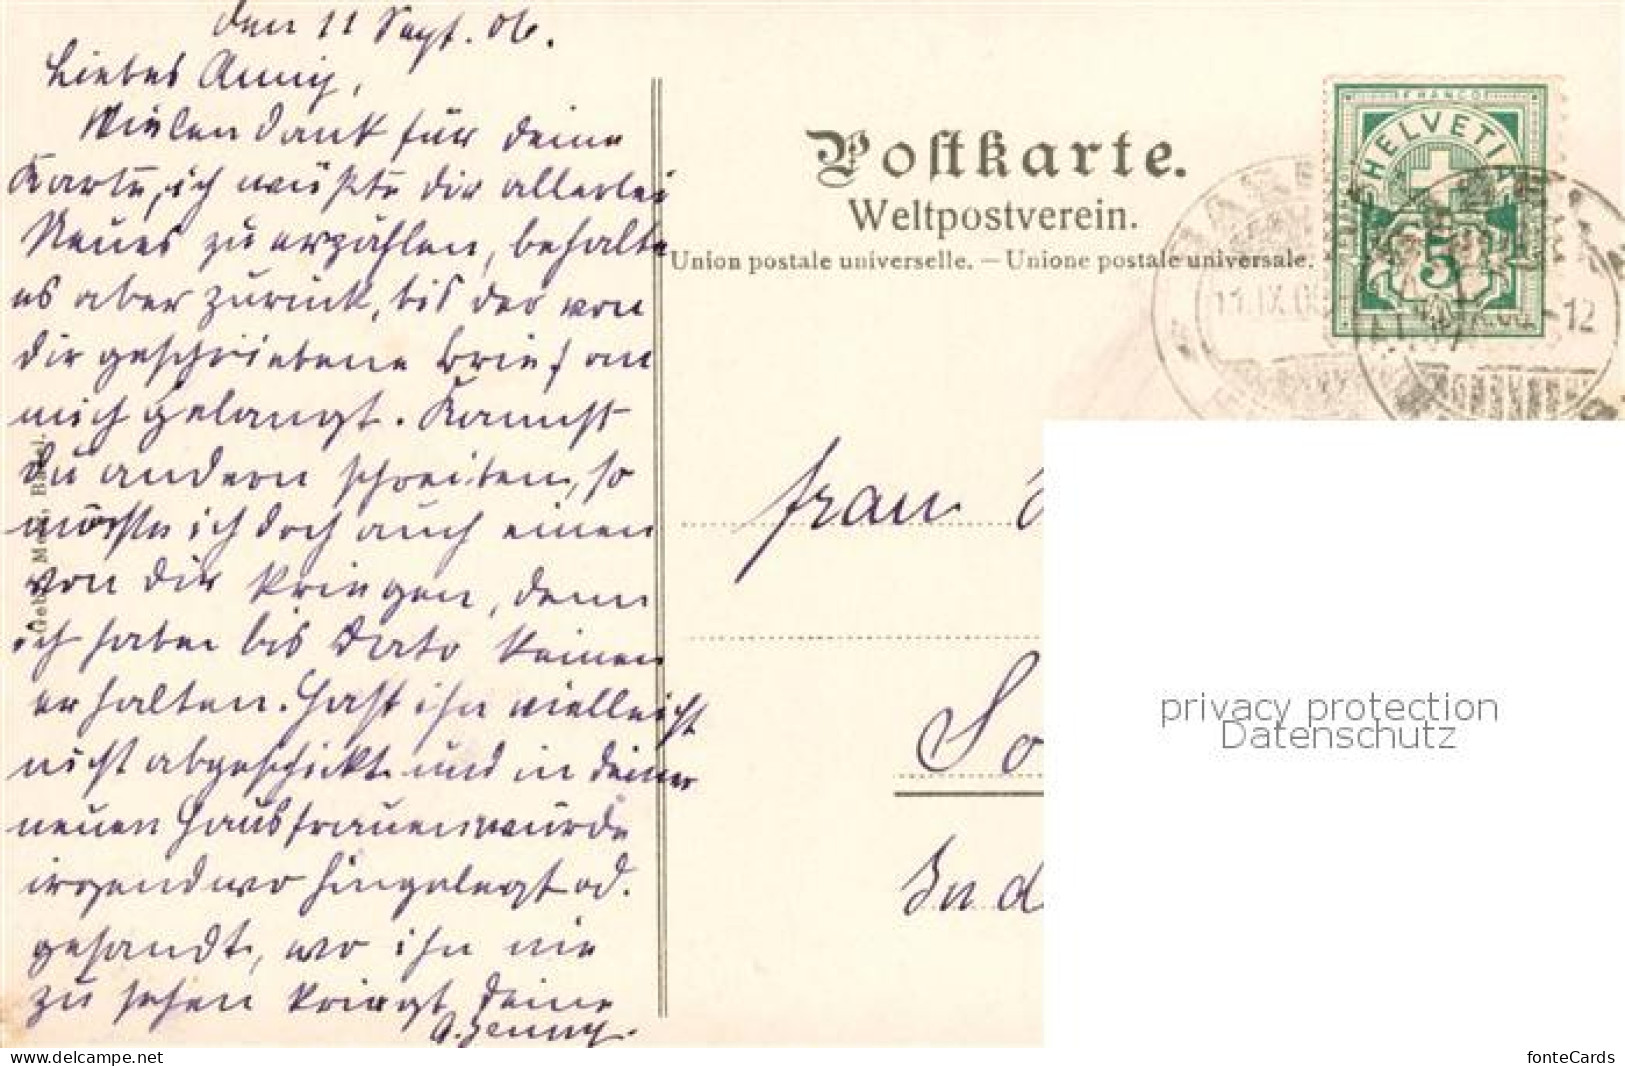 den 11 Sept. 06.
Liebes Anny,
Vielen Dank für deine
Karte, ich wüßte dir allerlei
Neues zu erzählen, behalte
es aber zurück, bis der von
dir geschriebene Brief an
mich gelangt. Kannst
du andern schreiben, so
möchte ich doch auch einen
von dir kriegen, denn
ich habe bis dato keinen
erhalten. Hast ihn vielleicht
nicht abgeschickt und in deiner
neuen Hausfrauenwürde
irgendwo hingelegt od.
gesandt, wo ihn nie
zu sehen kriegt deine
A. Jenny.
Gebr. M Basel.
Postkarte.
Weltpostverein.
Union postale universelle. — Unione postale universale.
FRANCO
HELVETIA
5
11.IX.06
-12
Frau
So
In d
privacy protection
Datenschutz
www.delcampe.net
fonteCards